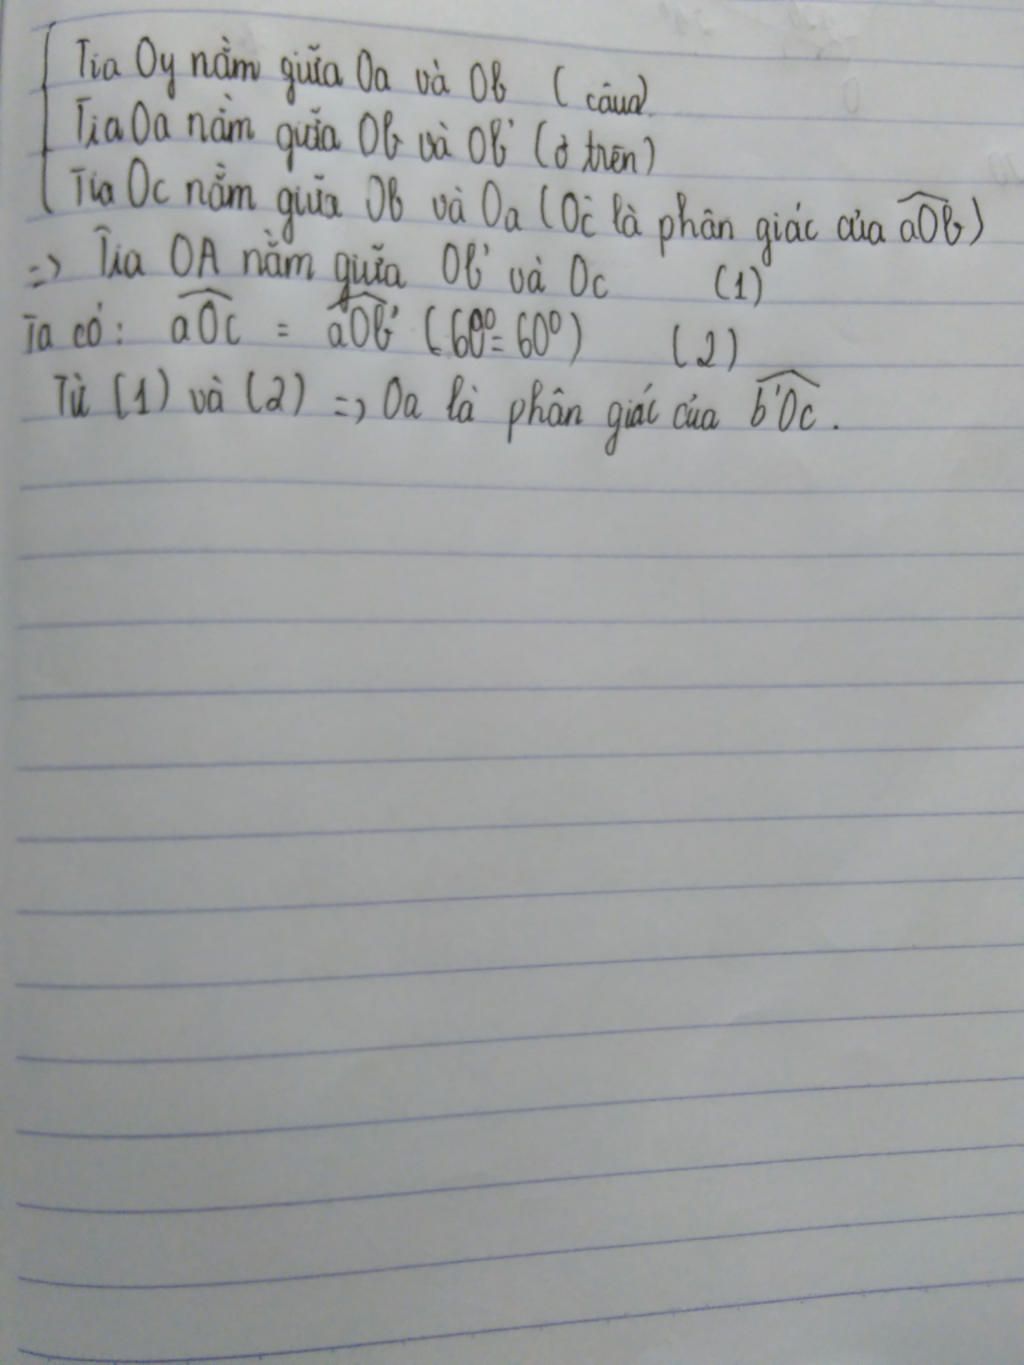 Tia Oy nằm giữa Oa và Ob (câua)
Tia Oa nằm giữa Ob và Ob' (ở trên)
Tia Oc nằm giữa Ob và Oa (Oc là phân giác của aOb)
=> Tia OA nằm giữa Ob' và Oc (1)
Ta có: aOc = aOb' (60° = 60°) (2)
Từ (1) và (2) => Oa là phân giác của b'Oc.